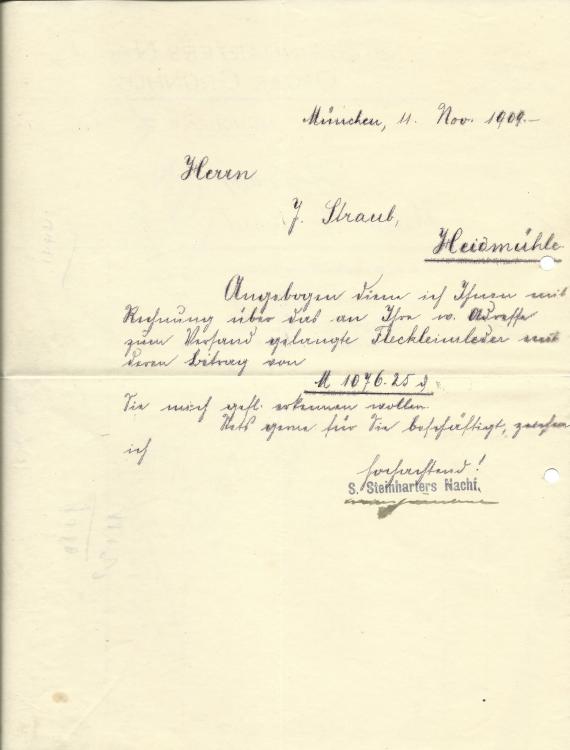 München, 11. Nov. 1909.-
Herrn
J. Straub,
Heidmühle
Angebogen diene ich Ihnen mit
Rechnung über das an Ihre w. Adresse
zum Versand gelangte Fleckleimleder mit
deren Betrag von
M 1076.25 ₰
Sie mich gefl. erkennen wollen.
Stets gerne für Sie beschäftigt, zeichne
ich
hochachtend!
S. Steinharters Nachf.